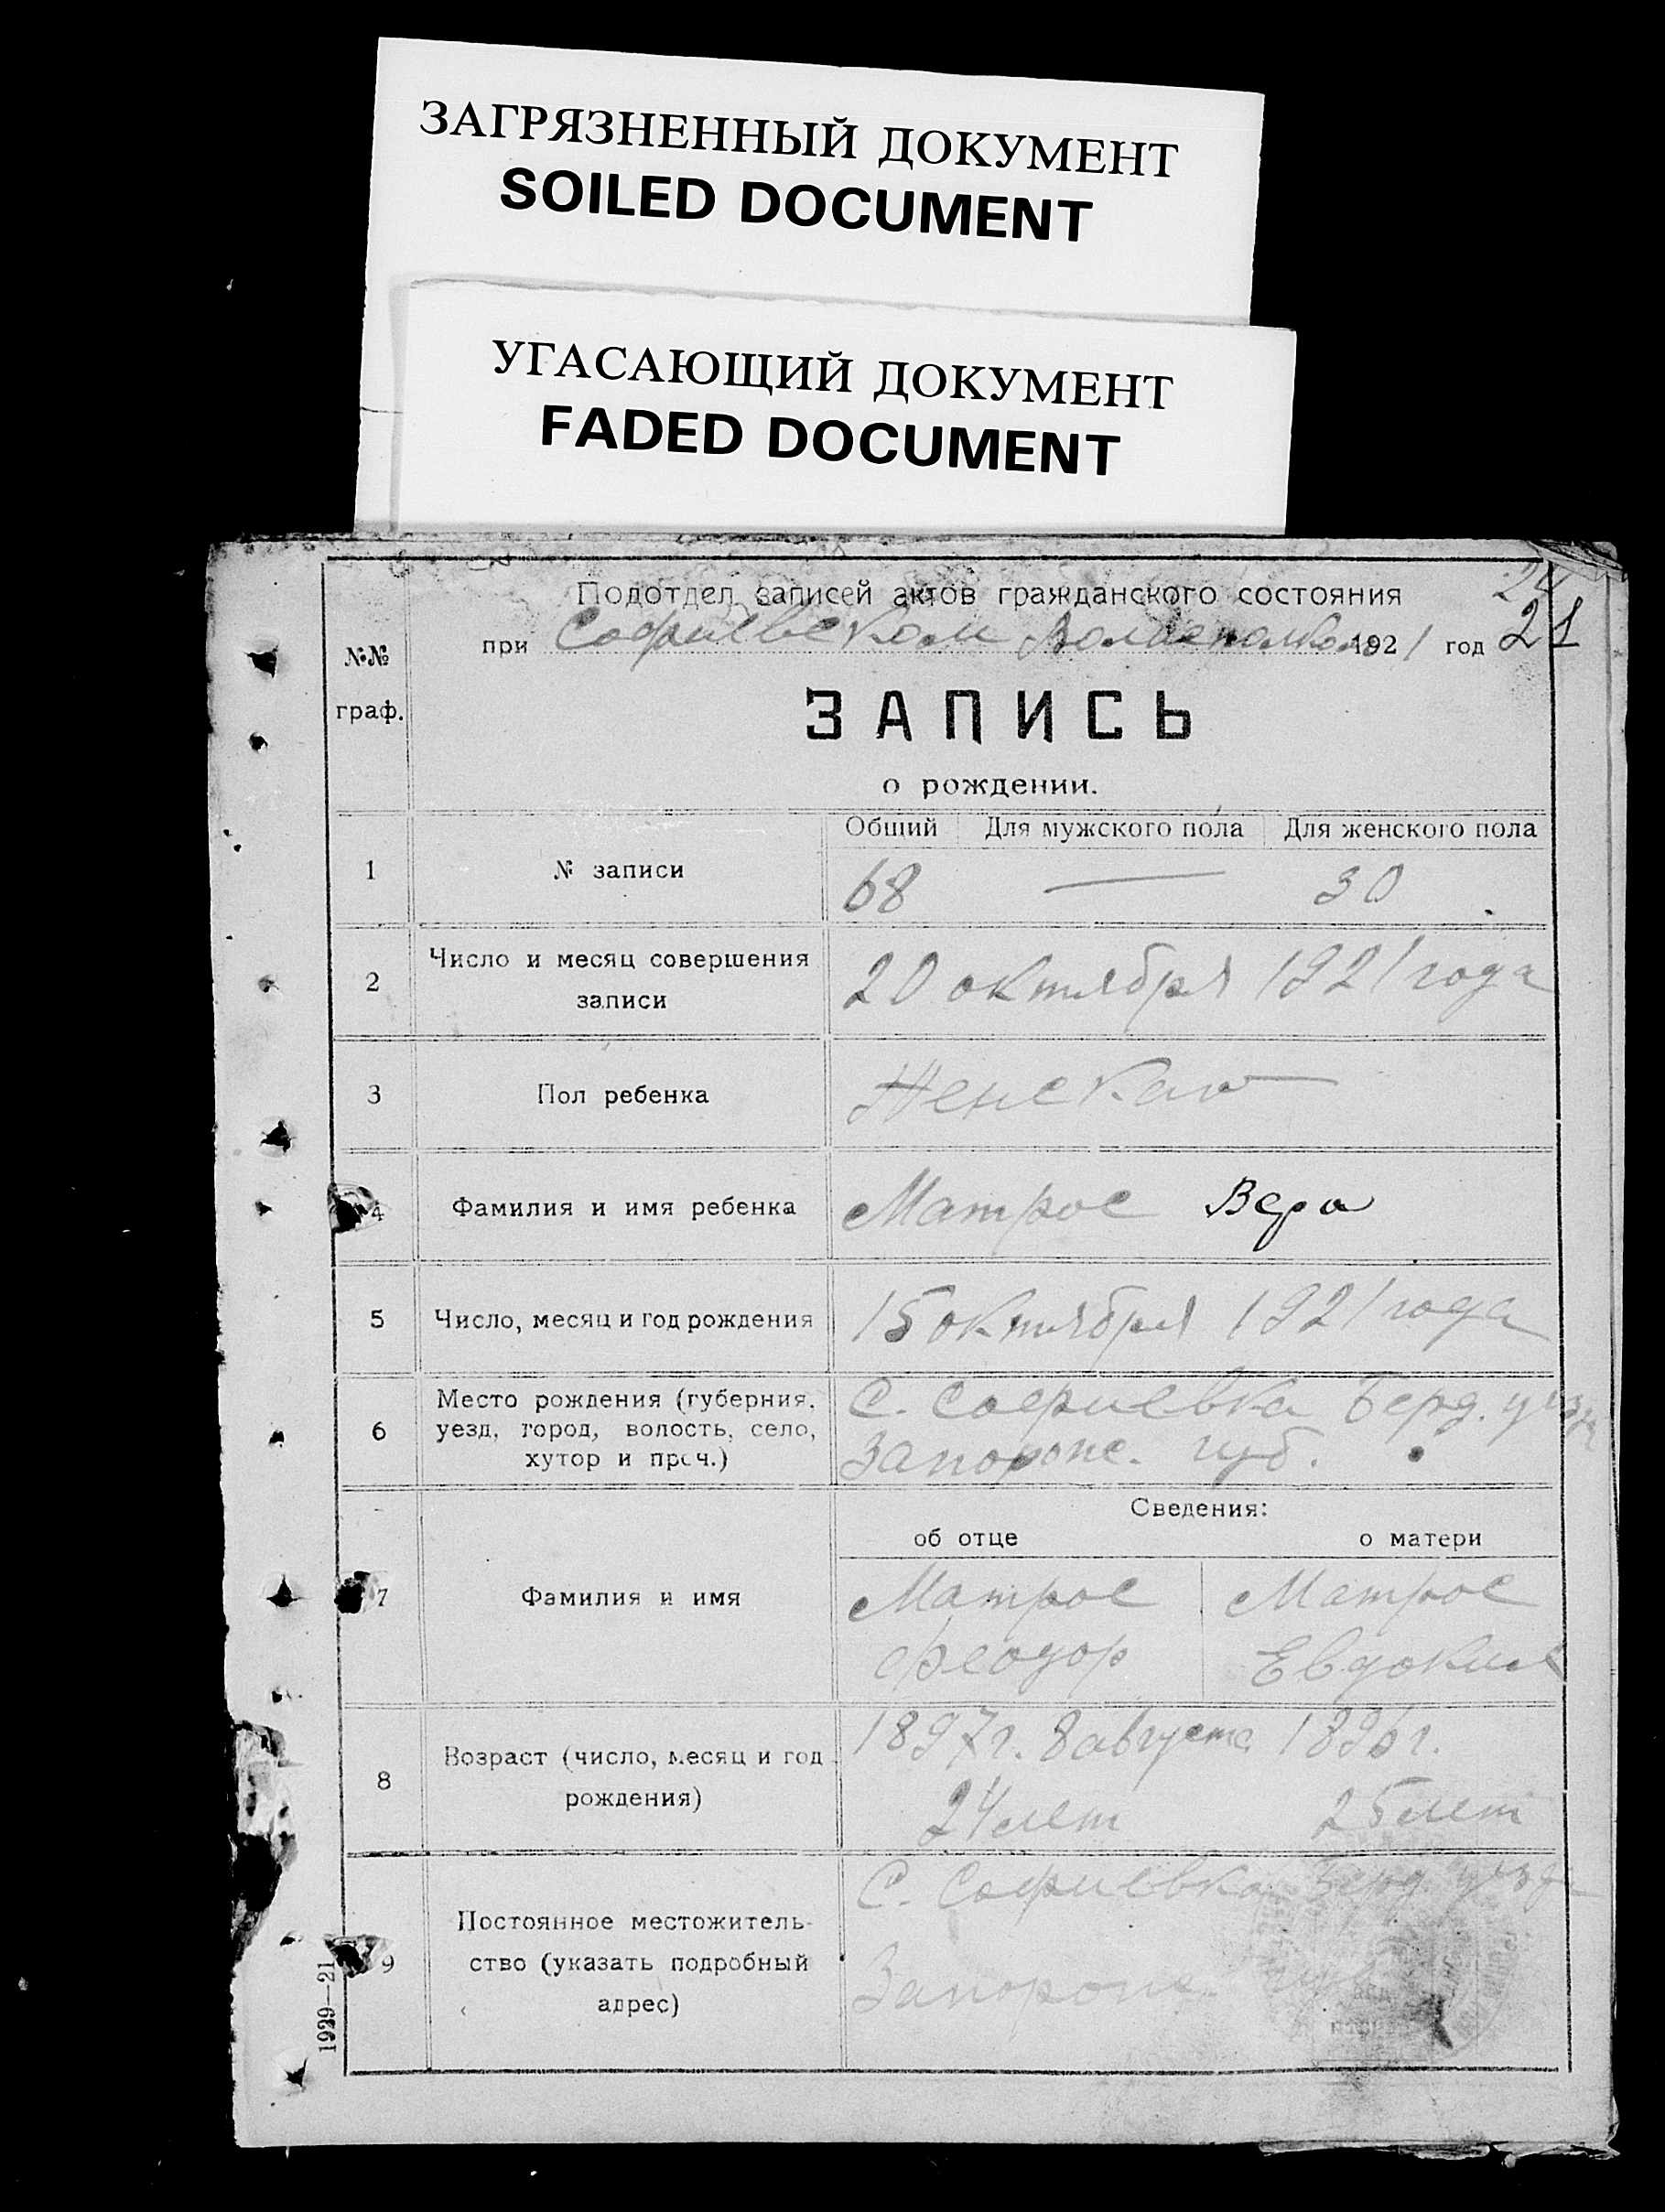 ЗАГРЯЗНЕННЫЙ ДОКУМЕНТ
SOILED DOCUMENT
УГАСАЮЩИЙ ДОКУМЕНТ
FADED DOCUMENT
24
Подотдел записей актов гражданского состояния
при Софиевском 1921 год 21
№№
граф.
ЗАПИСЬ
о рождении.
Общий Для мужского пола Для женского пола
1 № записи 68 — 30
2 Число и месяц совершения
записи
20 октября 1921 года
3 Пол ребенка Женская
4 Фамилия и имя ребенка Матрос Вера
5 Число, месяц и год рождения 15 октября 1921 года
6 Место рождения (губерния,
уезд, город, волость, село,
хутор и проч.)
С. Софиевка Берд. уезда
Запорож. губ.
Сведения:
об отце о матери
7 Фамилия и имя
Матрос Матрос
Феодор Евдокия
8 Возраст (число, месяц и год
рождения)
1897 г. 8 августа 1896 г.
24 лет 25 лет
9 Постоянное местожитель-
ство (указать подробный
адрес)
С. Софиевка Берд. уезда
Запорож. губ.
1939—21